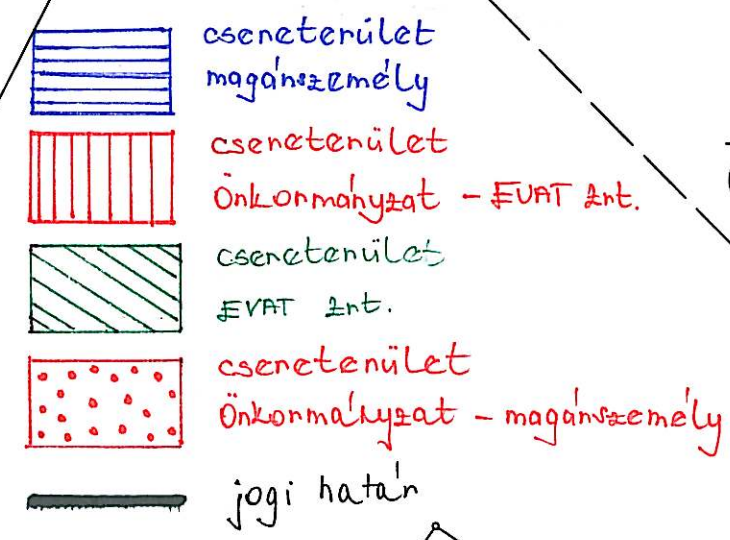 csereterület
magánszemély
csereterület
Önkormányzat - EVAT Zrt.
csereterület
EVAT Zrt.
csereterület
Önkormányzat - magánszemély
jogi határ